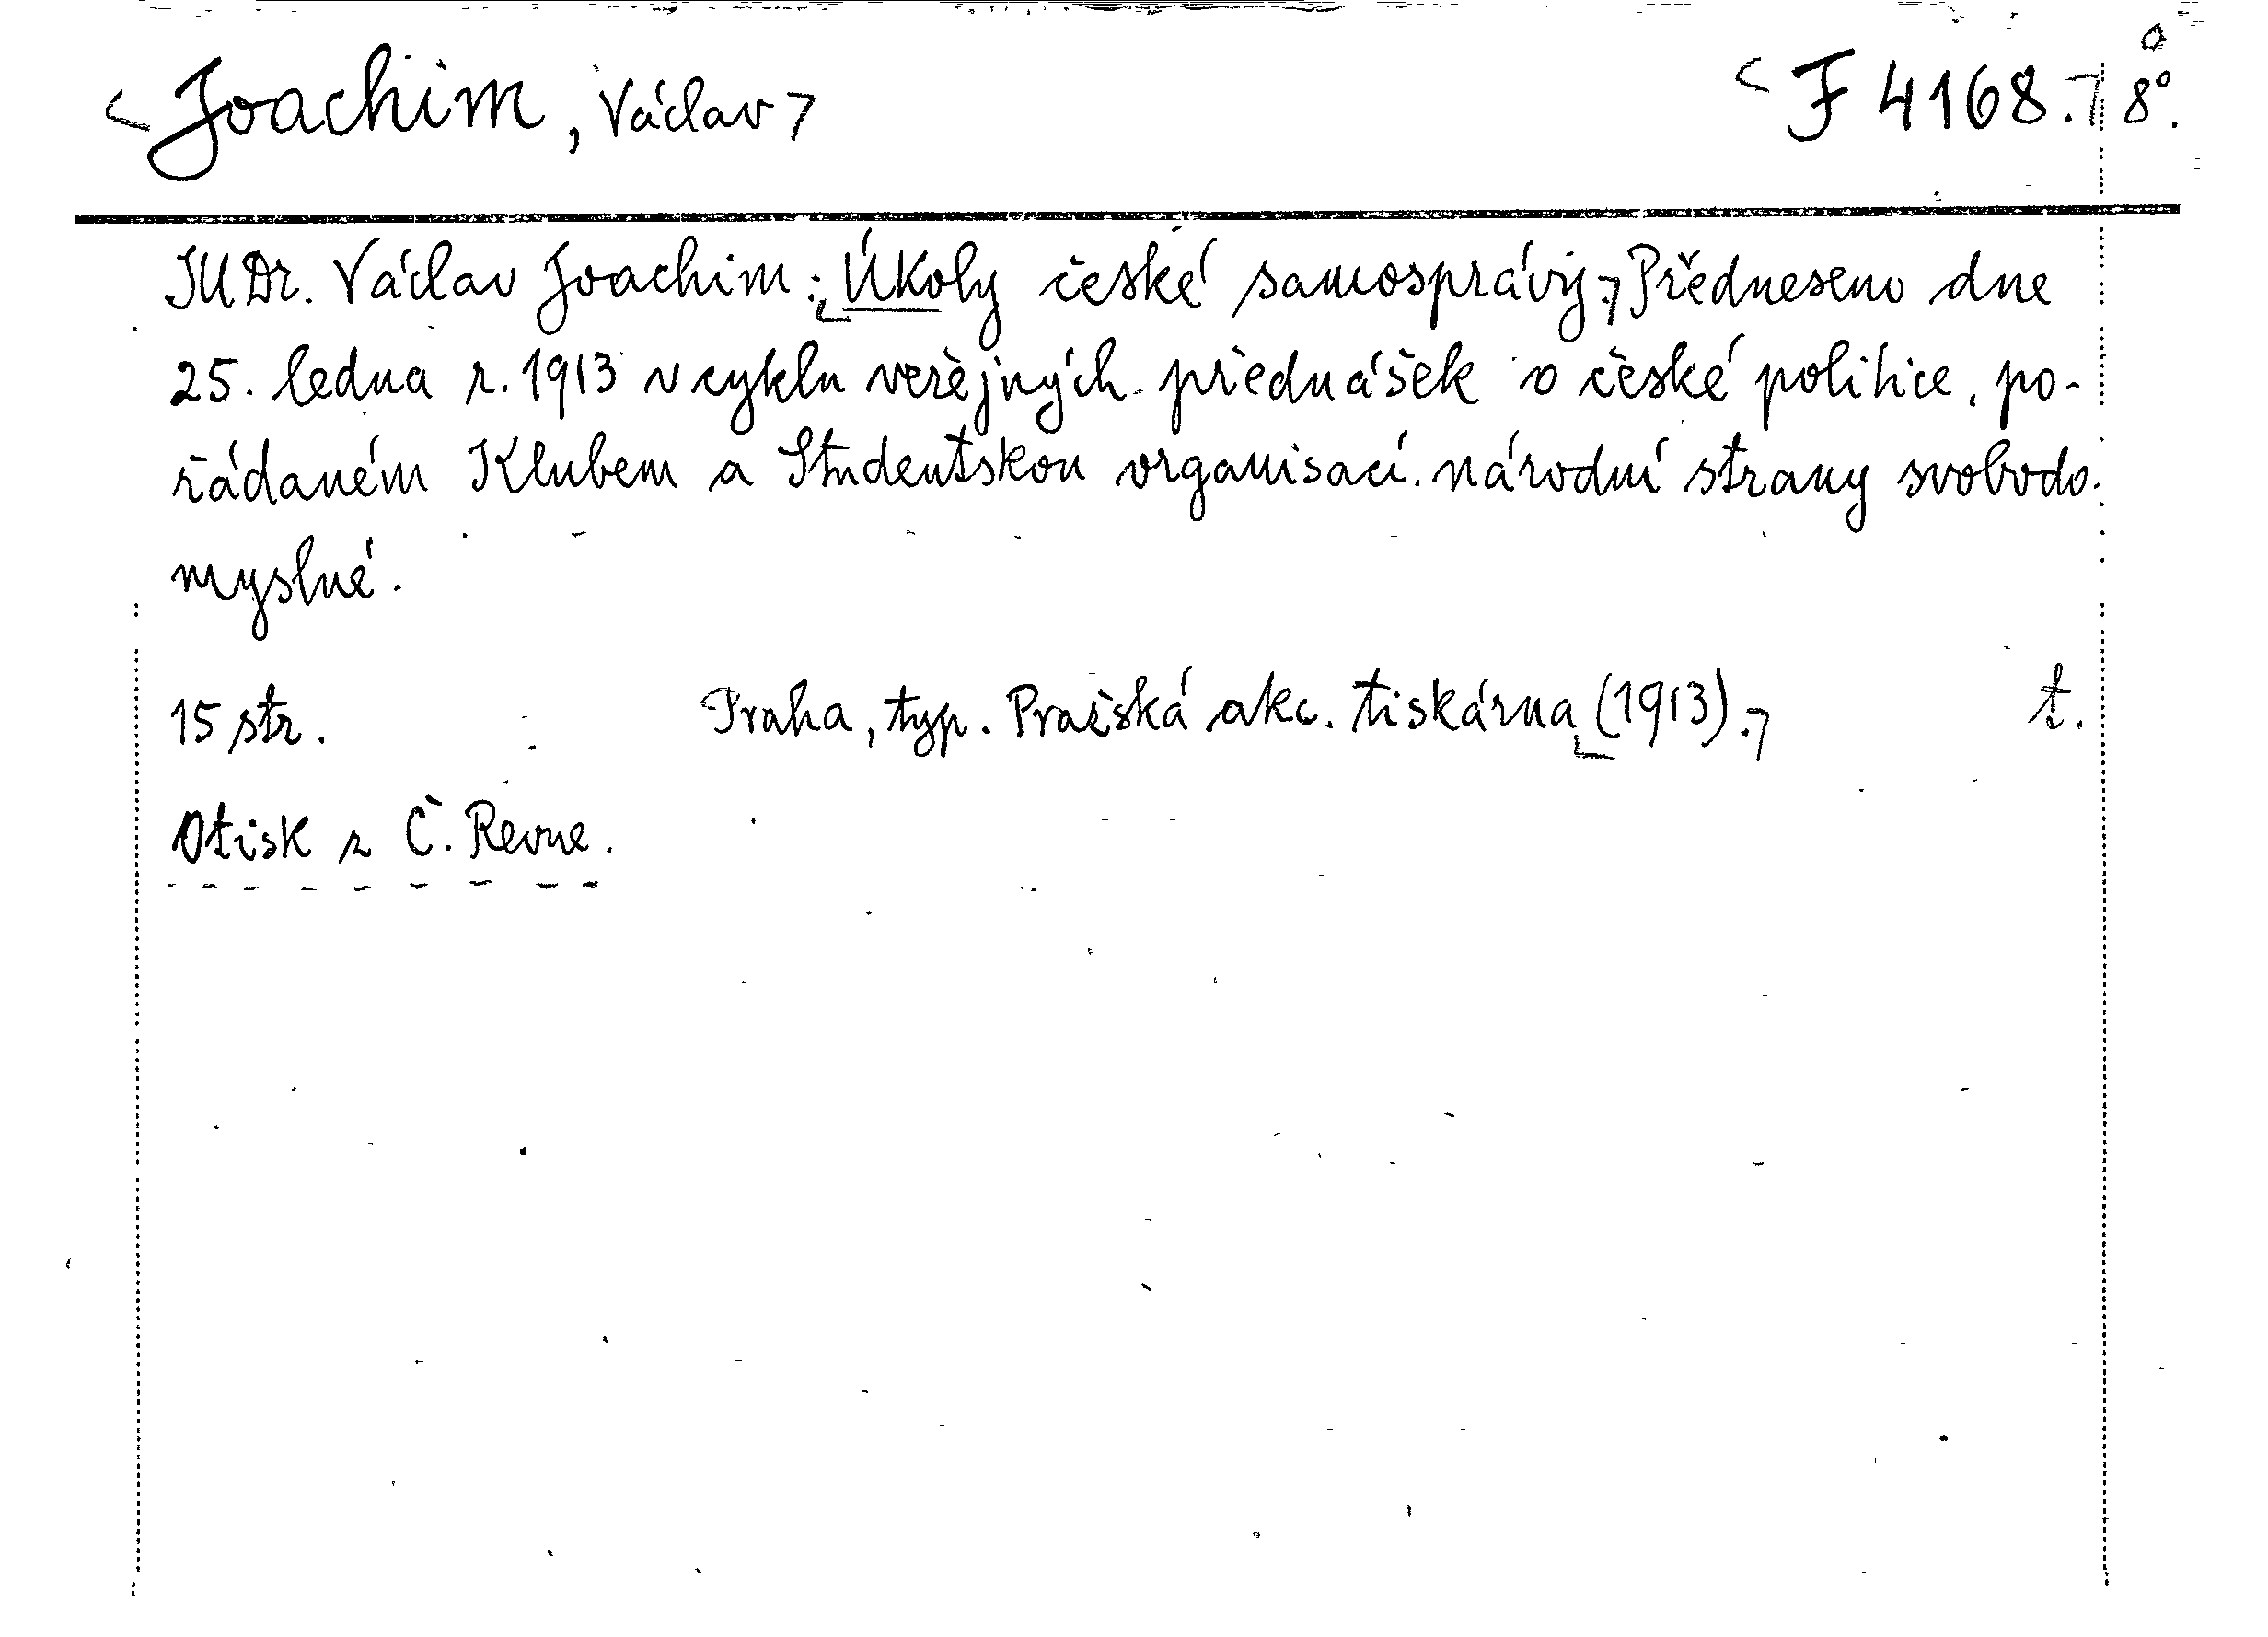 Joachim, Václav F 4168. 8°.
JUDr. Václav Joachim: Úkoly české samosprávy. Předneseno dne
25. ledna r. 1913 v cyklu veřejných přednášek o české politice, po-
řádaném Klubem a Studentskou organisací národní strany svobodo-
myslné.
15 str. Praha, typ. Pražská akc. tiskárna (1913). t.
Otisk z Č. Revue.